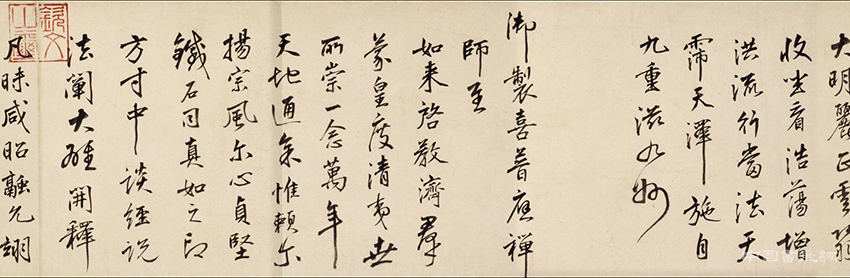 大明麗正雲翳
收坐看浩蕩增
洪流行當法天
霈天澤施自
九重滋九州
御製喜普應禪
師至
如来啓教濟羣
蒙皇度清夷世
所崇一念萬年
天地通余惟賴尔
揚宗風尔心貞堅
鐵石同真如之印
方寸中談經說
法闡大雄開釋
凡昧咸昭融允翊